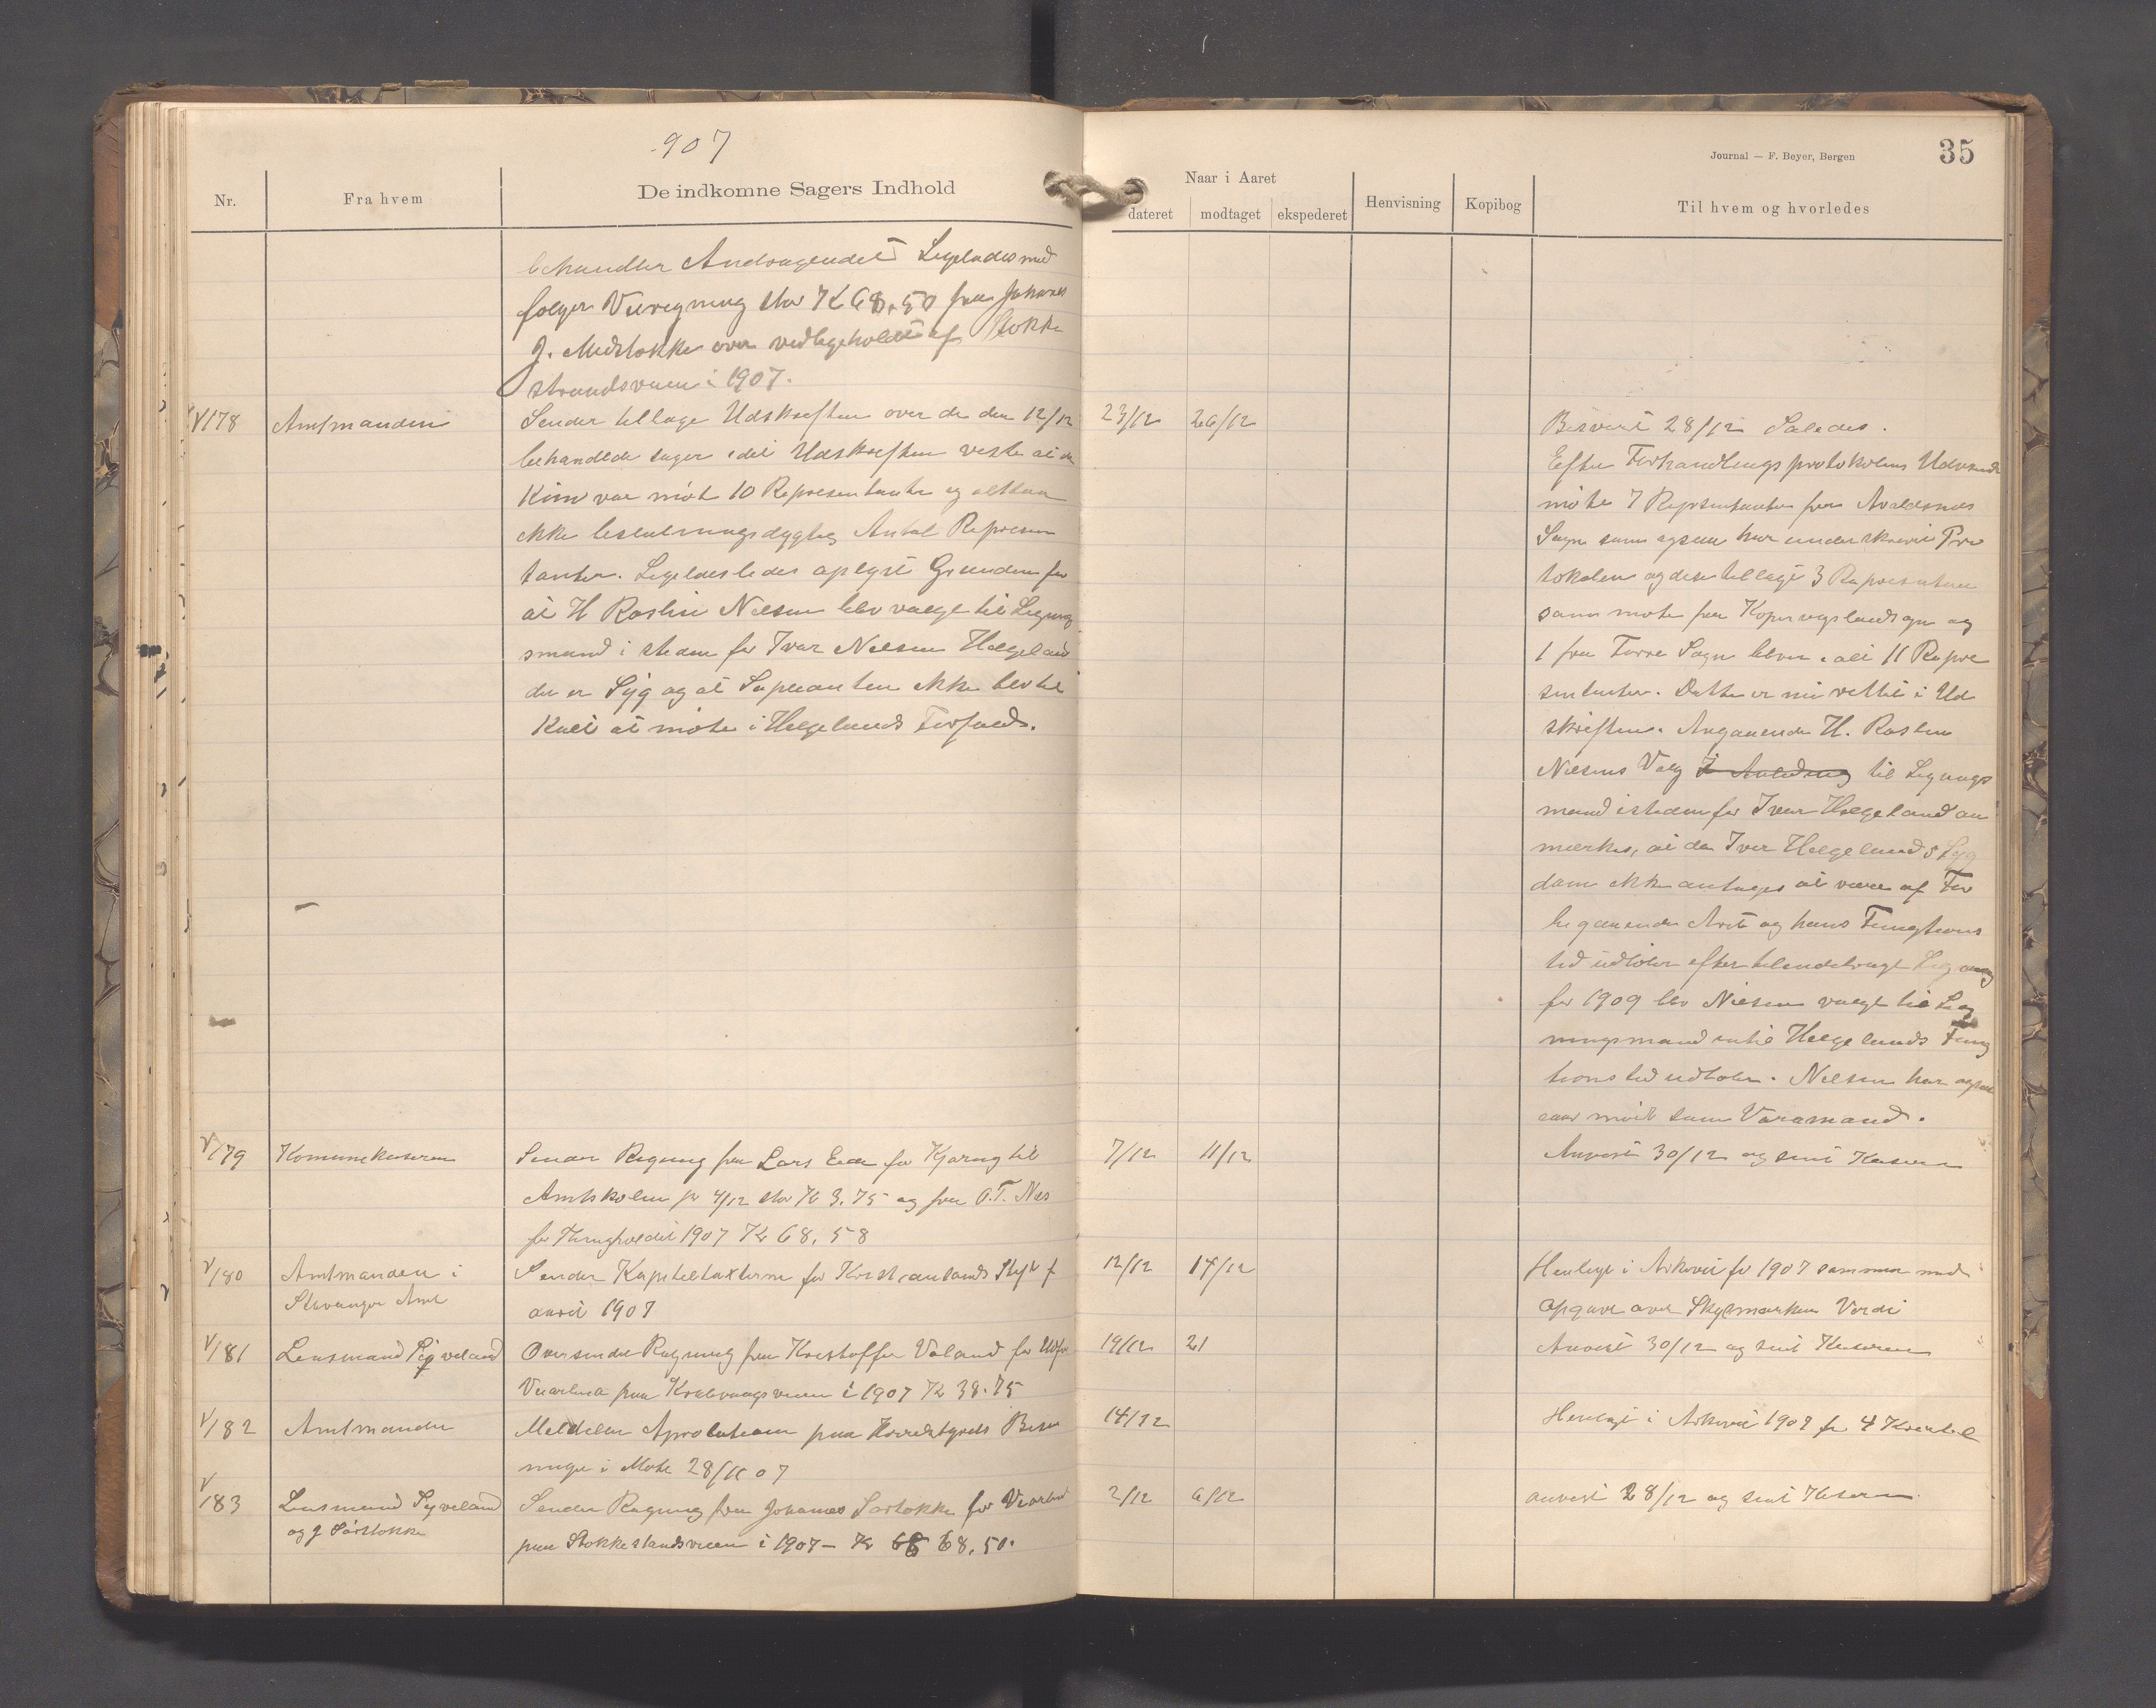 907
Journal — F. Beyer, Bergen
35
Nr.
Fra hvem
De indkomne Sagers Indhold
Naar i Aaret
dateret
modtaget
ekspederet
Henvisning
Kopibog
Til hvem og hvorledes
behandler Andragendet Ligeledes med
følger Veiregning stor Kr 68.50 fra Johanes
J. Medstokke over vedligeholdt af Stokke
strandsveien i 1907.
178
Amtmanden
Sender tilbage Udskriften over de den 12/12
behandlede sager idet Udskriften viste at der
Kun var møt 10 Representanter og altsaa
ikke beslutningsdygtig Antal Represen
tanter. Ligeledes bedes oplyst Grunden for
at H Raslin Nielsen blev valgt til Lignings
mand i steden for Ivar Nielsen Helgeland
der er Syg og at Supleanten ikke blev til
Kalt at møte i Helgelands Forfald.
23/12
26/12
Besvart 28/12 Saledes.
Efter Forhandlings protokolens Udvisende
møte 7 Representanter fra Avaldsnes
Sogn som ogsaa har underskrevet Pro
tokolen og desu tillagt 3 Representanter
som møte fra Kopervig landsogn og
1 fra Torve Sogn bliver ialt 11 Repre
sentanter. Dette er nu rettet i Ud
skriften. Angaaende H. Raslin
Nielsens Valg til Lignings
mand isteden for Ivar Helgeland an
merkes, at da Iver Helgelands Syg
dom ikke antages at være af For
bigaaende Art og hans Fungtions
tid udløber efter tilendebragt Ligning
for 1909 blev Nielsen valgt til Lig
ningsmand intil Helgelands Fung
tions tid udløber. Nielsen har ogsaa
iaar møtt som Varamand.
179
Komunekasseren
Sender Regning fra Lars Eide for Kjøring til
Amtskolen pr 4/12 stor Kr 3.75 og fra O.T. Nes
for Thinghold 1907 Kr 68.58
7/12
11/12
Anvist 30/12 og sent Kasseren
180
Amtmanden i
Stavanger Amt
Sender Kapiteltaksterne for Kristiansands Stift f
aaret 1907
12/12
17/12
Henlagt i Arkivet for 1907 sammen med
Opgave over Skyldmarkens Verdi
181
Lensmand Sygveland
Oversender Regning fra Kristoffer Valand for Udfør
Veiarbeid paa Krabvaagsveien i 1907 Kr 38.75
19/12
21
Anvist 30/12 og sent Kasseren
182
Amtmanden
Meddeler Aprobation paa Herredstyrets Beslut
ninger i Møte 28/11 07
14/12
Henlagt i Arkivet 1907 for 4 Kvartal
183
Lensmand Sygveland
og J Sørstokke
Sender Regning fra Johannes Sørstokke for Veiarbeid
paa Stokkestrandsveien i 1907 – Kr 68.50.
2/12
6/12
anvist 28/12 og sent Kasseren